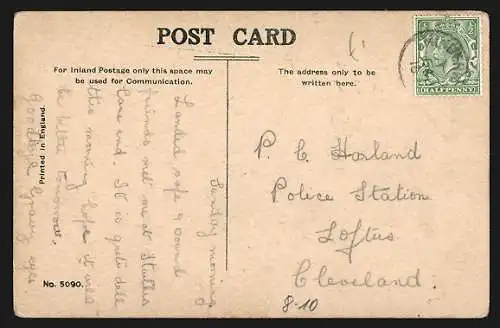 POST CARD
For Inland Postage only this space may
be used for Communication.
The address only to be
written here.
HALFPENNY
Sunday morning
Landed safe & sound
friends met me at
Lane end. It is quite dull
this morning hope it will
be better tomorrow.
goodbye
eyes
P. C. Harland
Police Station
Loftus
Cleveland.
8-10
Printed in England.
No. 5090.